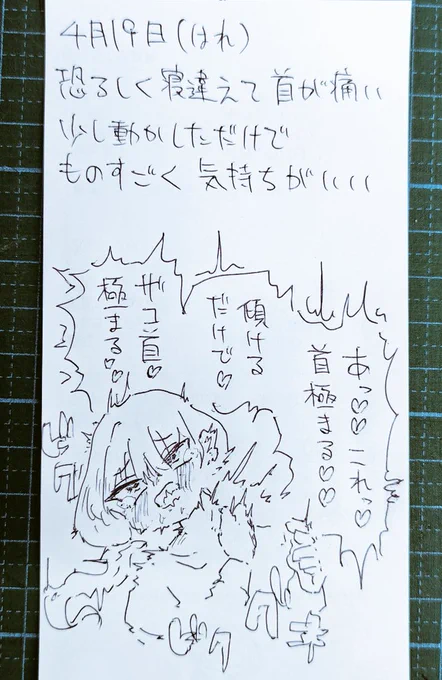 4月19日(はれ)
恐ろしく寝違えて首が痛い
少し動かしただけで
ものすごく気持ちがいいい
あっ♡♡これっ♡
首極まる♡♡
傾ける
だけで♡
ザコ首♡
極まる♡♡